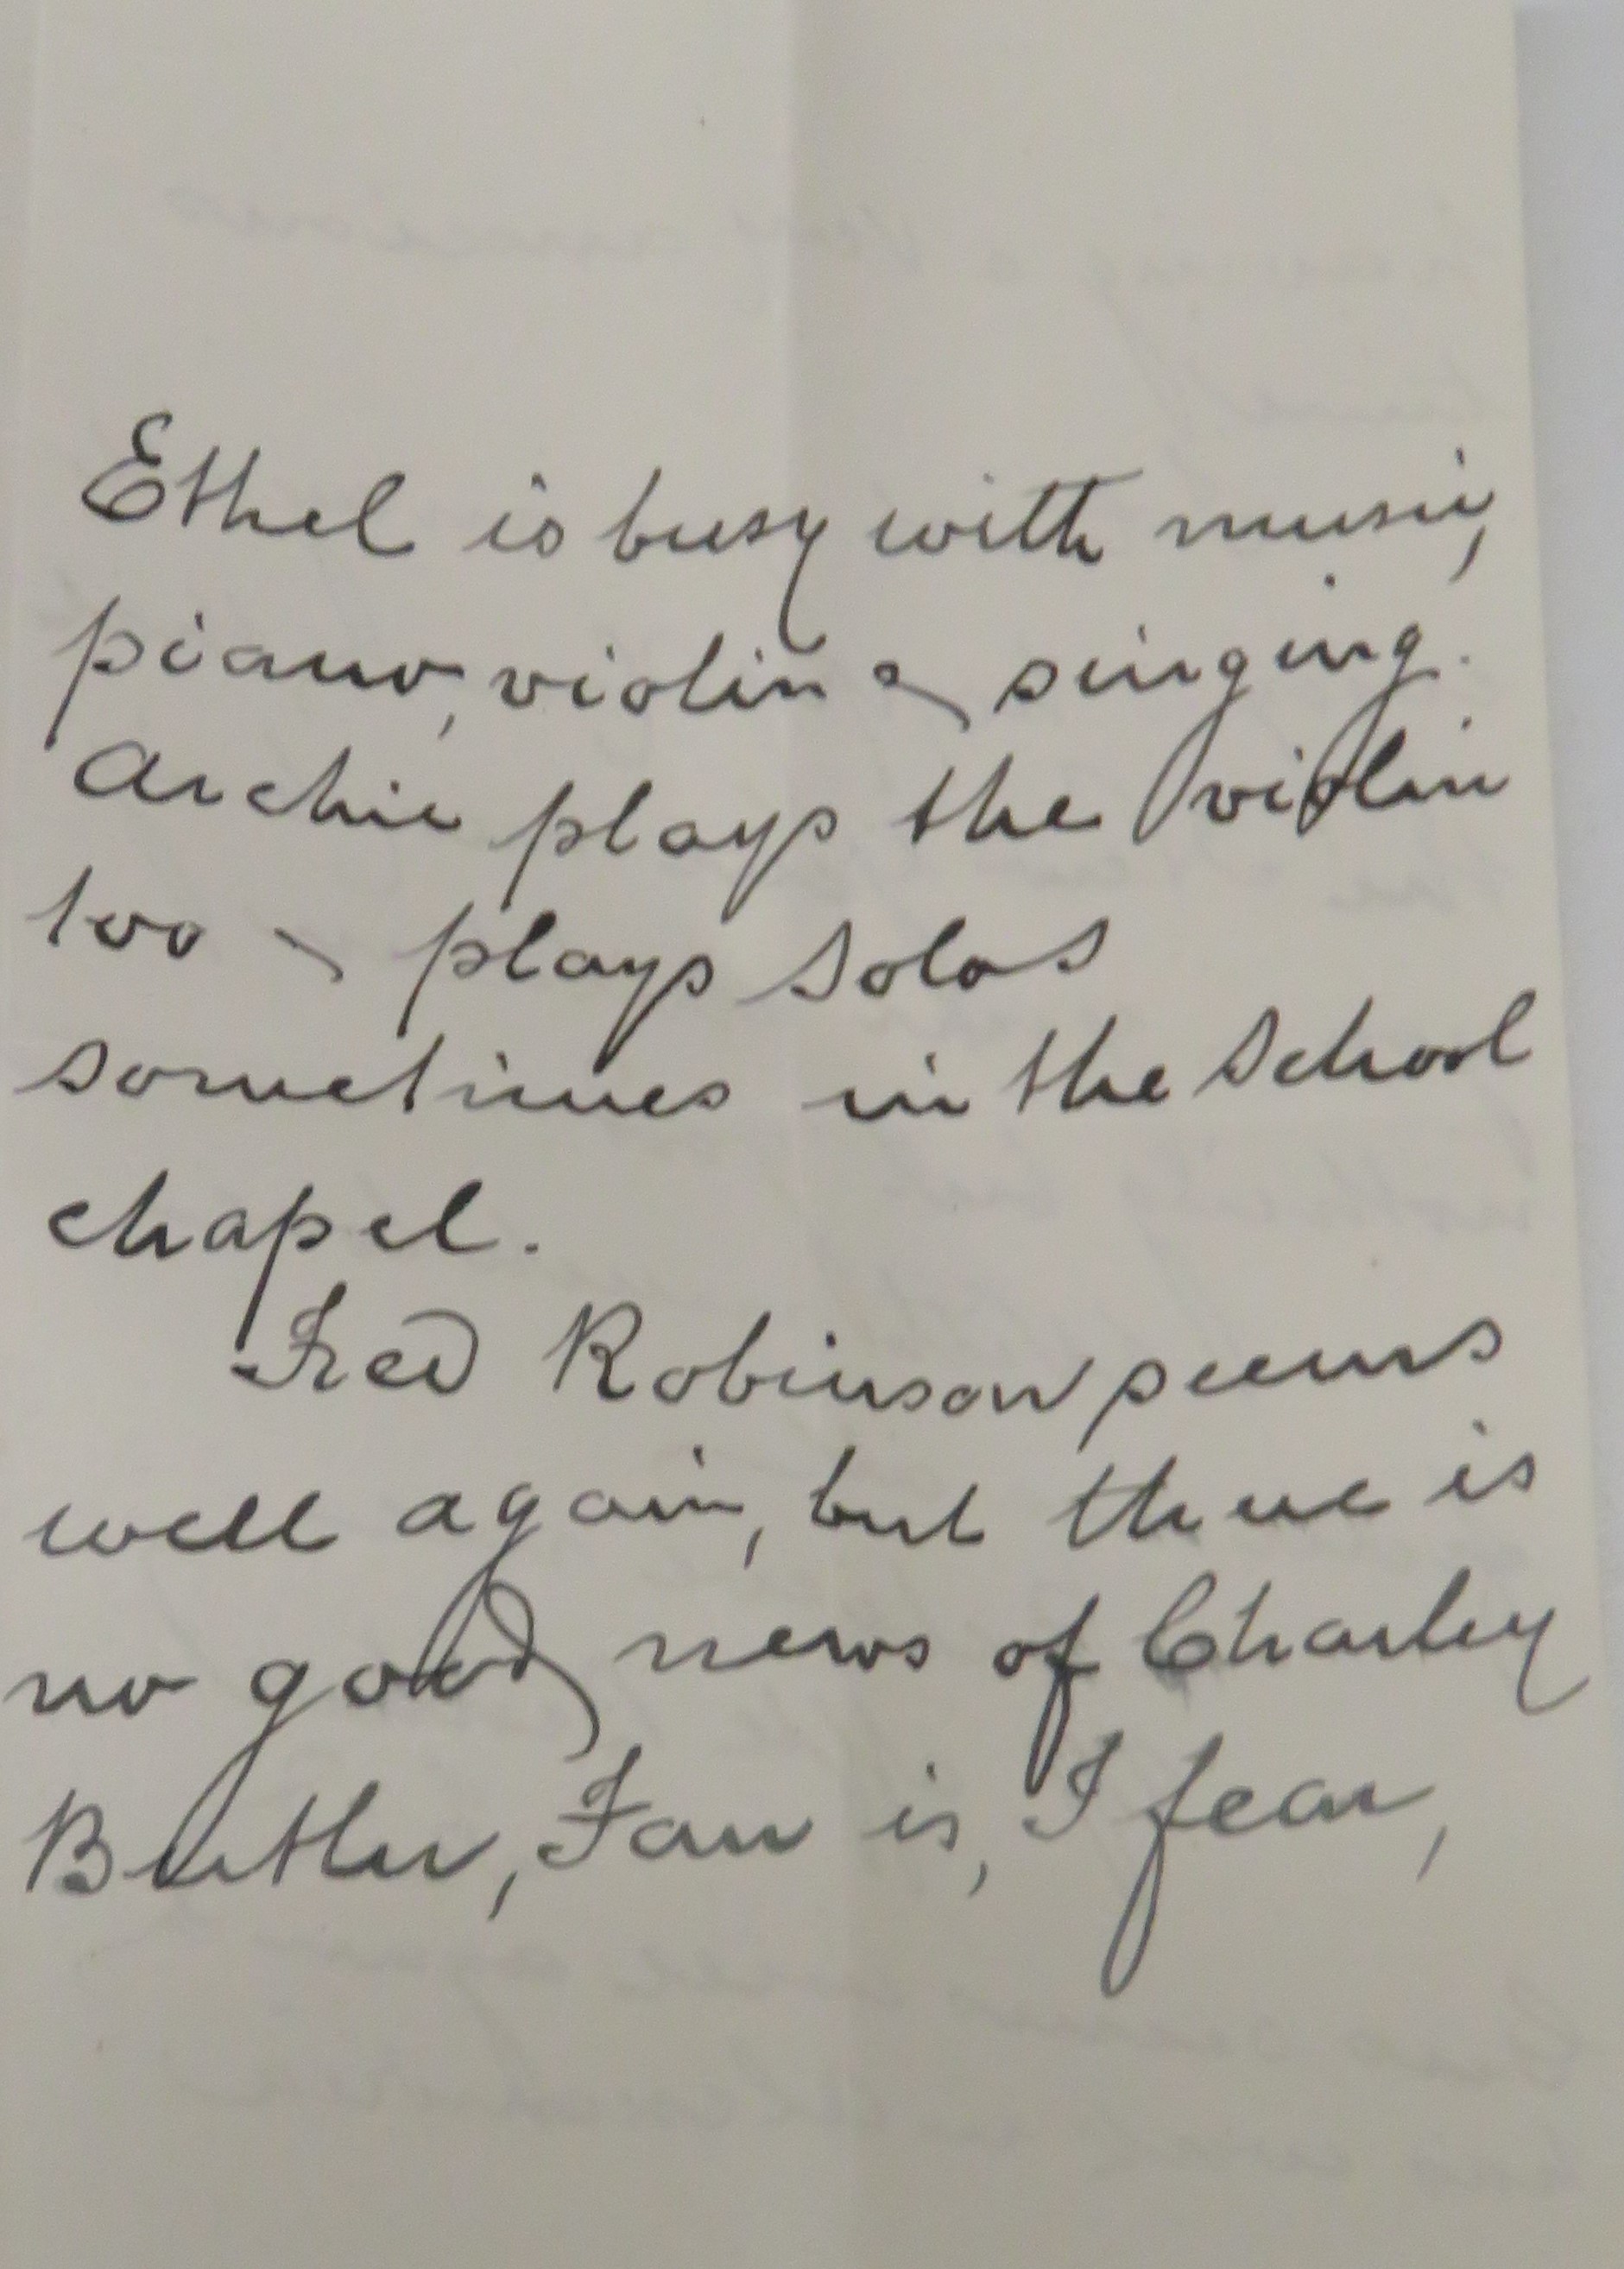 Ethel is busy with music,
piano, violin & singing.
Archie plays the violin
too & plays solos
sometimes in the School
chapel.
Fred Robinson seems
well again, but there is
no good news of Charley
Butler, Fan is, I fear,